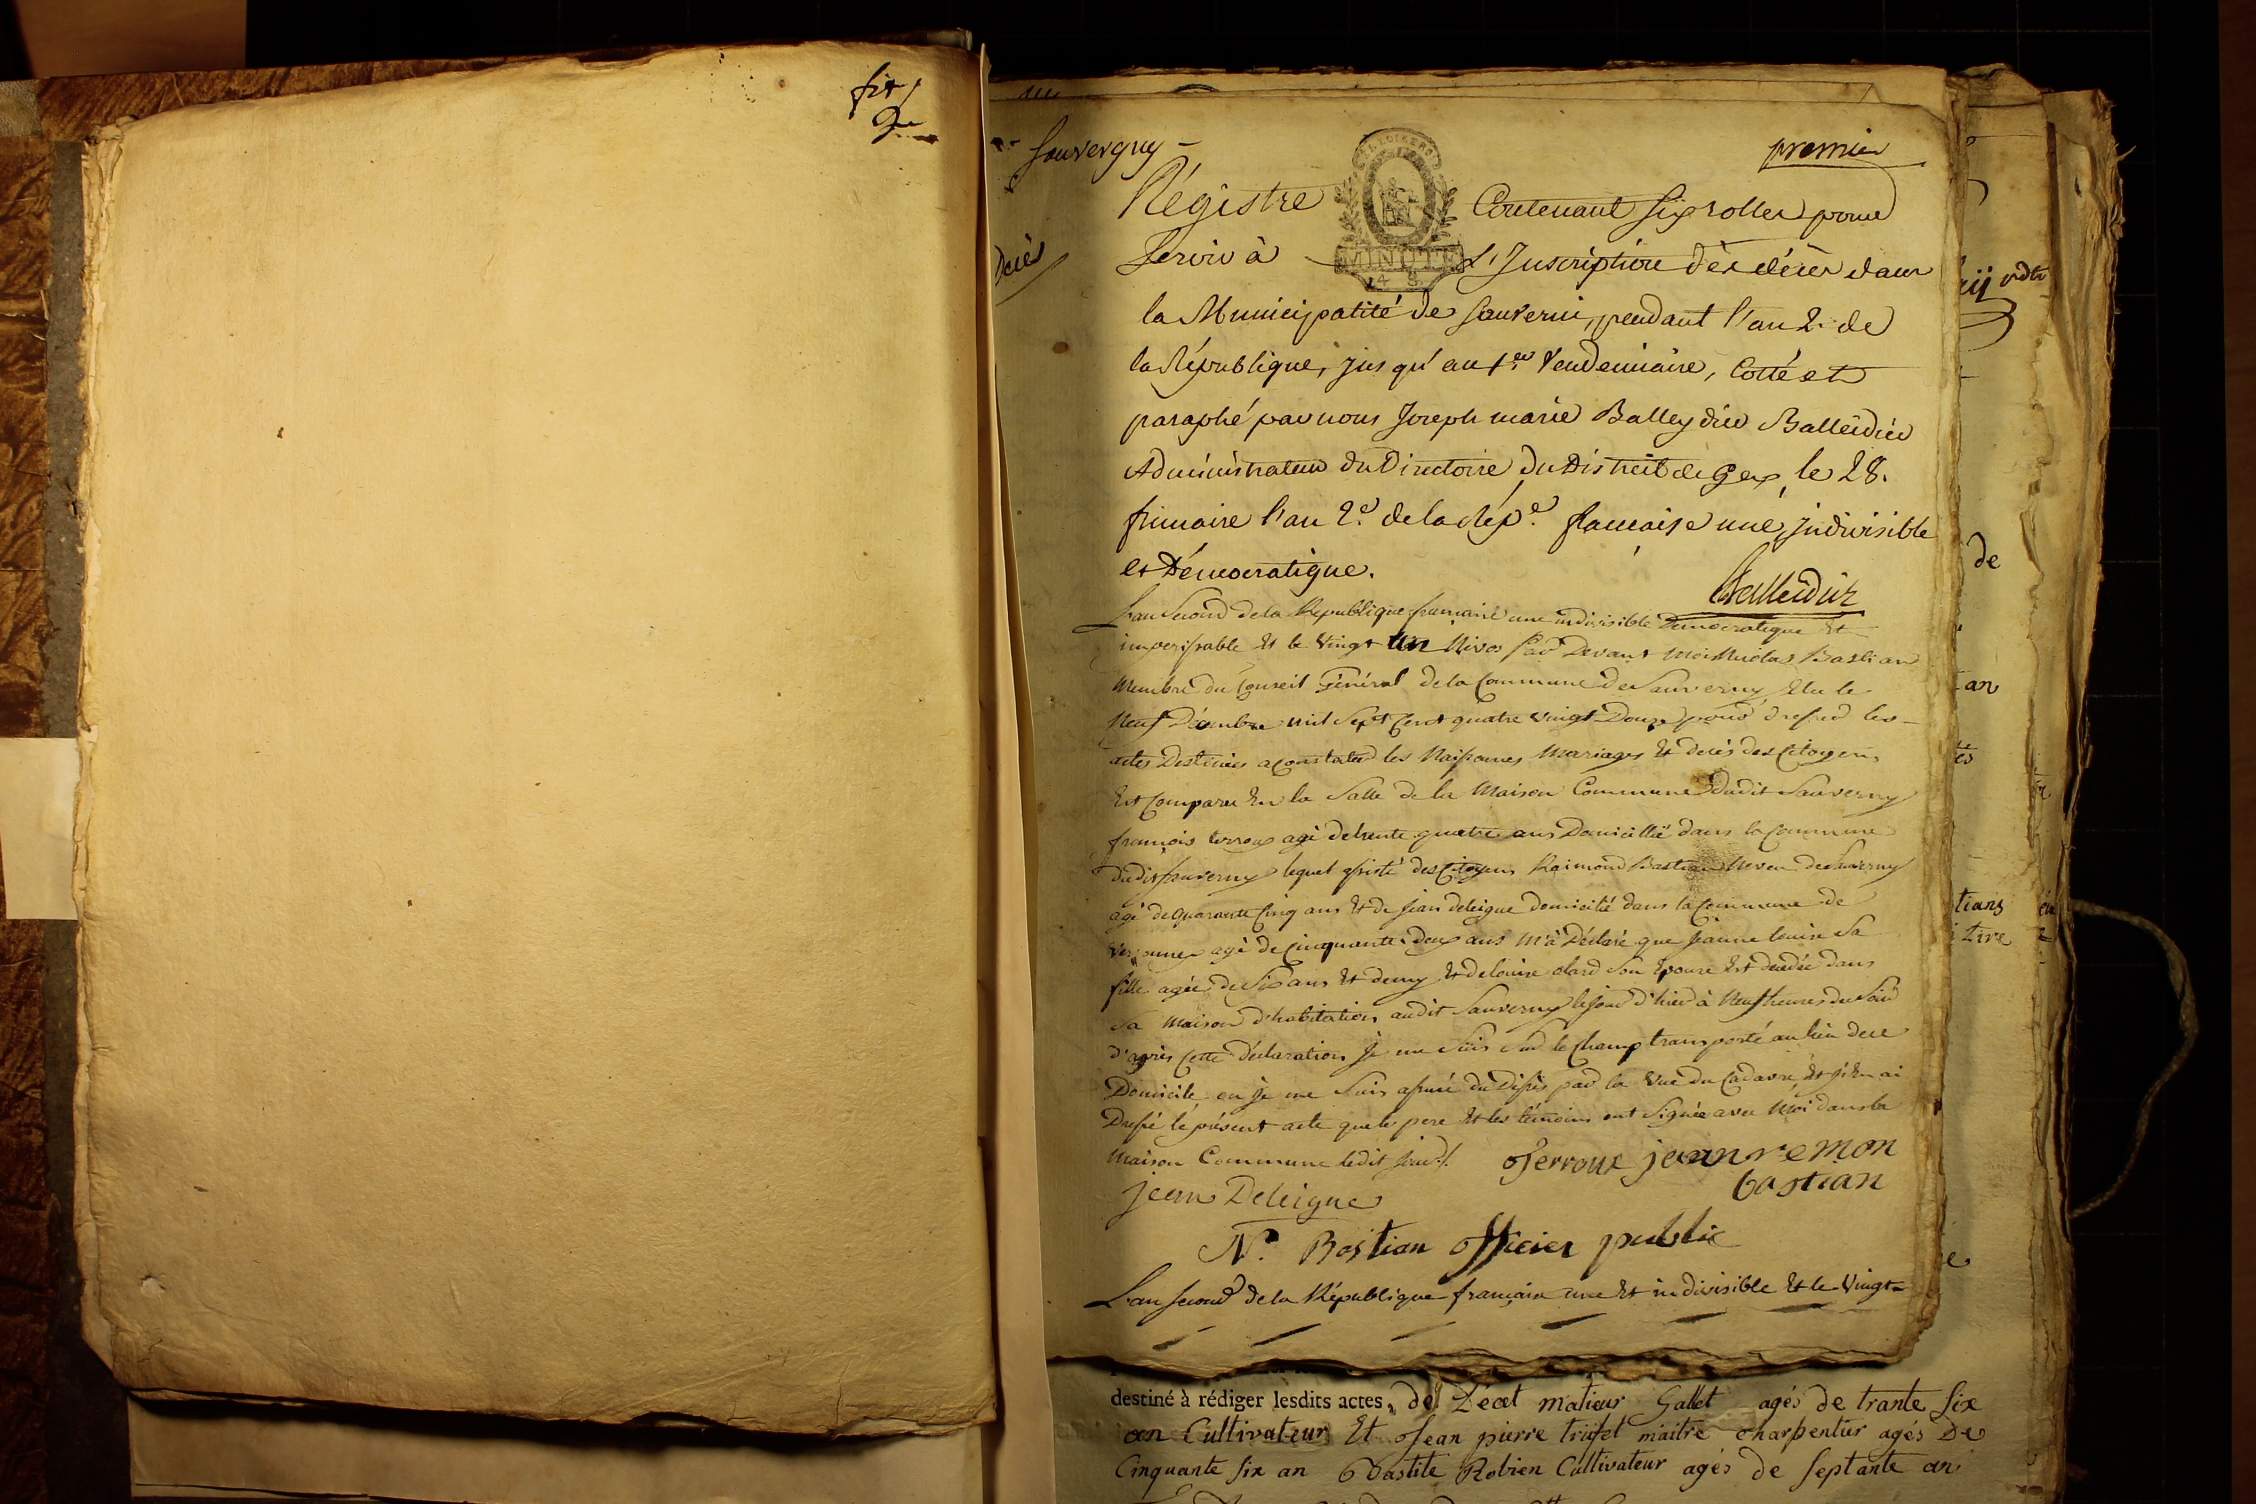 Sauvergny
premier
Régistre Contenant six rolles pour
Décès
Servir à L'Inscription dès décès dans
MINUTE
la Municipatité de Sauverni, pendant l'an 2. de
la République, jus qu'au 1.er Vendemiaire, Cotté et
paraphé par nous Joseph marie Balleydier Balleidier
Administrateur du Directoire du District de Gex, le 28.
frimaire l'an 2.e de la Rép.e francaise une, indivisible
et Démocratique.
Balleidier
L'an Second de la Republique française une indivisible Democratique Et
imperissable Et le Vingt un Nivos Par Devant Moi Nicolas Bastian
Membre du Conseil Général de la Commune de Sauverny Elu le
Neuf Décembre mil Sept Cent quatre vingt Douze pour dresser les
actes Destinés a Constater les Naissances Mariages Et decès des Citoyens
Est Comparu En la Salle de la Maison Commune dudit Sauverny
françois terroux agé de trente quatre ans Domicillié dans la Commune
dudit Sauverny lequel assisté des Citoyens Raimond Bastian Neveu de Sauverny
agé de quarante Cinq ans Et de Jean deleigue domicilié dans la Commune de
agé de Cinquante deux ans M'à Déclaré que Jeanne louise Sa
fille agée de Six ans Et demy Et de louise Son Epouse Est decedée dans
Sa Maison d'habitation audit Sauverny le jour d'hier à Neuf heures du Soir
d'après Cette Déclaration Je me Suis Sur le Champ transporté au lieu de ce
Domicile ou je me Suis assuré du Dissès par la Vue du Cadavre, Et j'En ai
Dressé le présent acte que le pere Et les témoins ont Signée avec Moi dans la
Maison Commune ledit jour ./.
Jerroux jean remon
bastian
jean Deleigue
N.s Bastian officier public
L'an second de la République française une Et indivisible Et le Vingt-
destiné à rédiger lesdits actes, de matieur Gallet agés de trante six
an Cultivateur Et Jean pierre trüfet maitre charpentier agés De
Cinquante six an Bastite Robien Cultivateur agés de septante an
de
an
tians